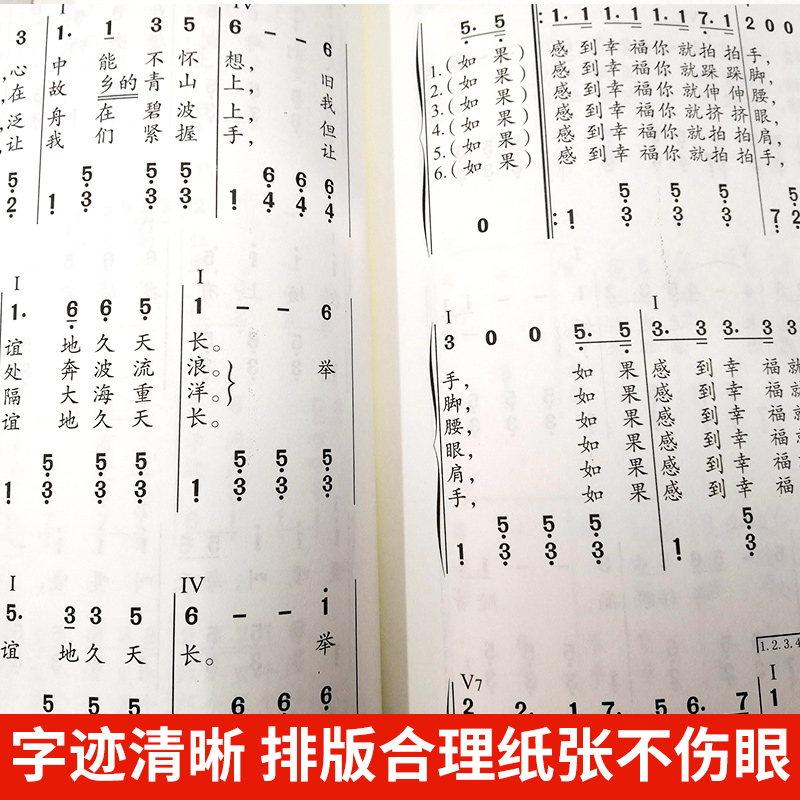 I IV
3 1. 1 3 5 6 - - 6
心 中 能 不 怀 想， 旧
在 故 乡的 青 山 上， 我
泛 舟 在 碧 波 上， 但
让 我 们 紧 握 手， 让
5 5 5 5 6 6 6
2 1 3 3 3 1 4 4 4
I I
1. 6 6 5 1 - - 6
谊 地 久 天 长。 举
处 奔 波 流 浪。
隔 大 海 重 洋。
谊 地 久 天 长。
5 5 5 5 5 5
1 3 3 3 1 3 3 3
I IV
5. 3 3 5 6 - - 1
谊 地 久 天 长。 举
5 5 5 6 6 6
5. 5 1. 1 1. 1 1. 1 7. 1 2 0 0
1.(如 果) 感 到 幸 福 你 就 拍 拍 手，
2.(如 果) 感 到 幸 福 你 就 跺 跺 脚，
3.(如 果) 感 到 幸 福 你 就 伸 伸 腰，
4.(如 果) 感 到 幸 福 你 就 挤 挤 眼，
5.(如 果) 感 到 幸 福 你 就 拍 拍 肩，
6.(如 果) 感 到 幸 福 你 就 拍 拍 手，
5 5 5 5
0 1 3 1 3 7 2
I I
3 0 0 5. 5 3. 3 3 3. 3
手， 如 果 感 到 幸 福 就
脚， 如 果 感 到 幸 福 就
腰， 如 果 感 到 幸 福 就
眼， 如 果 感 到 幸 福 就
肩， 如 果 感 到 幸 福 就
手， 如 果 感 到 幸 福 就
5 5 5 5
1 3 3 3 1 3
1.2.3.4
V7 I
2 2. 7 5 6. 7 1
字迹清晰 排版合理纸张不伤眼